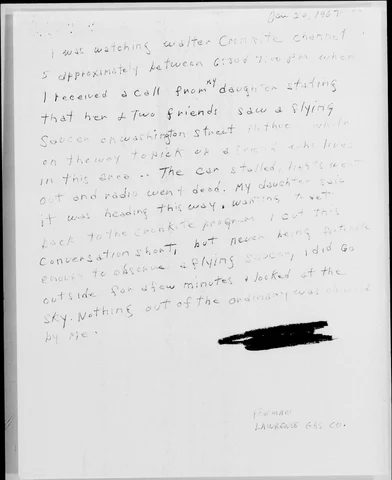 Jan 20, 1967
I was watching Walter Cronkite channel
5 approximately between 6: and 7: when
I received a call from my daughter stating
that her & Two friends saw a flying
Saucer on Washington Street while
on the way to pick up a friend who lives
in this area.. The car stalled, lights went
out and radio went dead. My daughter said
it was heading this way. wanting to get
back to the Cronkite program I cut this
conversation short, but never being fortunate
enough to observe a flying saucer, I did Go
outside for a few minutes & looked at the
sky. Nothing out of the ordinary was observed
by me.
FOREMAN
LAWRENCE GAS CO.